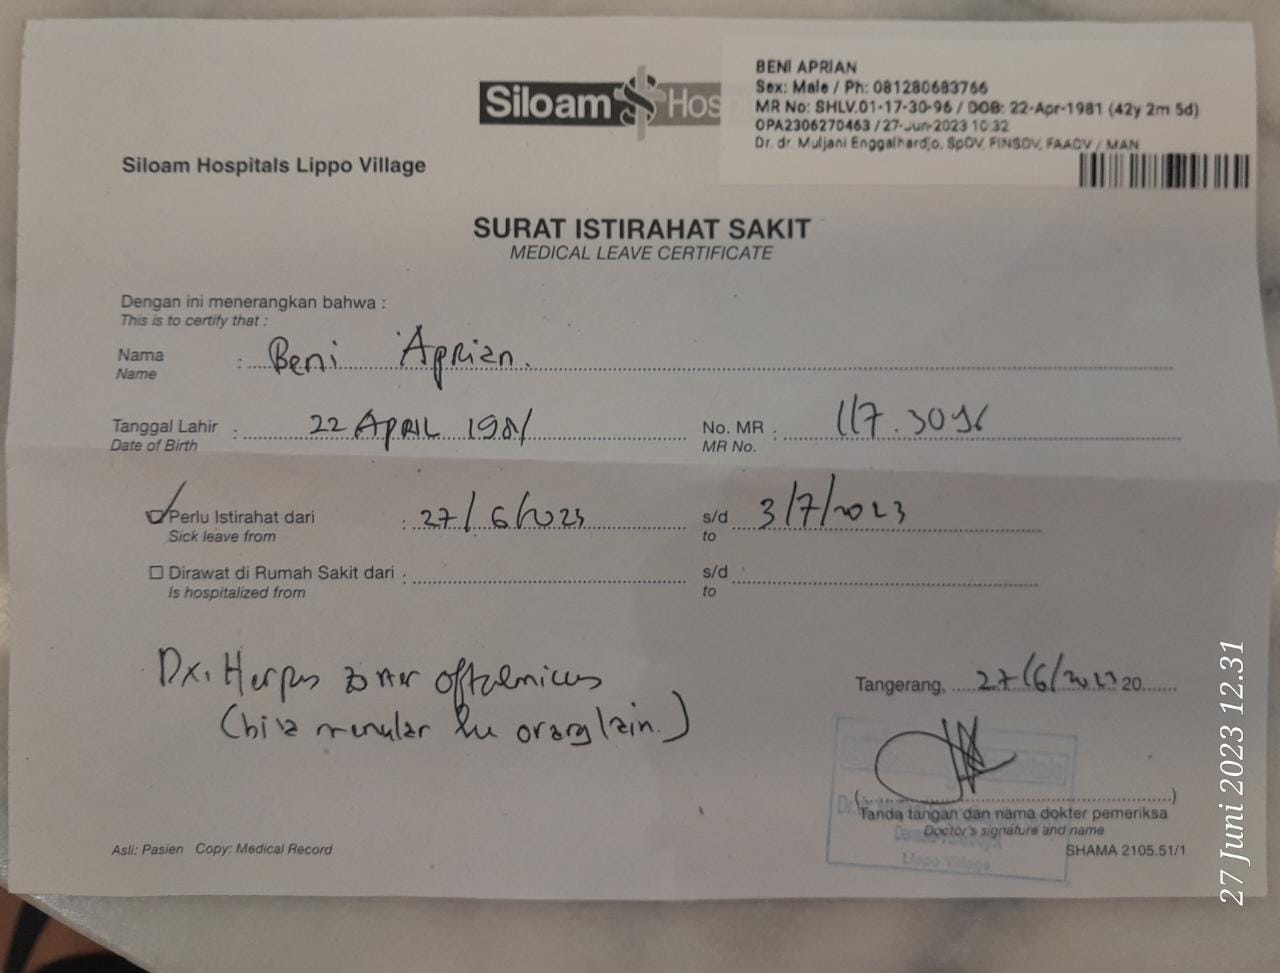 Siloam Hosp
BENI APRIAN
Sex: Male / Ph: 081280683766
MR No: SHLV.01-17-30-96 / DOB: 22-Apr-1981 (42y 2m 5d)
OPA2306270463 / 27-Jun-2023 10:32
Dr. dr. Muljani Enggalhardjo, SpDV, FINSDV, FAADV / MAN
Siloam Hospitals Lippo Village
SURAT ISTIRAHAT SAKIT
MEDICAL LEAVE CERTIFICATE
Dengan ini menerangkan bahwa :
This is to certify that :
Nama : Beni Aprian.
Name
Tanggal Lahir : 22 APRIL 1981 No. MR : 117.3096
Date of Birth MR No.
Perlu Istirahat dari : 27/6/2023 s/d 3/7/2023
Sick leave from to
Dirawat di Rumah Sakit dari : s/d
Is hospitalized from to
Dx. Herpes zoster oftalmicus
(bisa menular ke orang lain.)
Tangerang, 27/6/2023 20
Tanda tangan dan nama dokter pemeriksa
Doctor's signature and name
Lippo Village
Asli: Pasien Copy: Medical Record
SHAMA 2105.51/1
27 Juni 2023 12.31